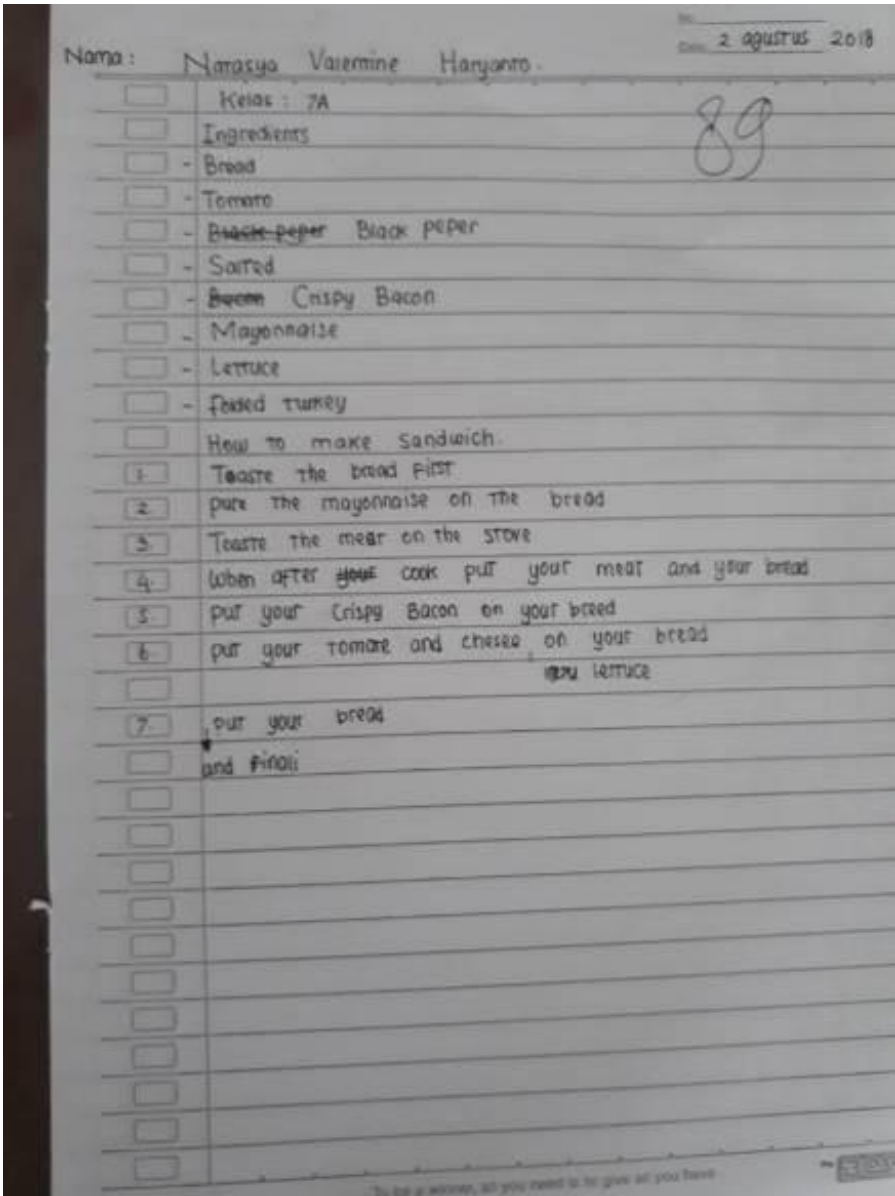 No.
Date: 2 agustus 2018
Nama : Natasya Valentine Haryanto.
Kelas : 7A
89
Ingredients
- Bread
- Tomato
- Black peper Black peper
- Salted
- Bacon Crispy Bacon
- Mayonnaise
- Lettuce
- folded turkey
How to make sandwich.
1. Toaste the bread first
2. pute the mayonnaise on the bread
3. Toaste the meat on the stove
4. When after your cook put your meat and your bread
5. put your Crispy Bacon on your breed
6. put your tomate and chesee, on your bread
lettuce
7. put your bread
and finali
To be a winner, all you need is to give all you have